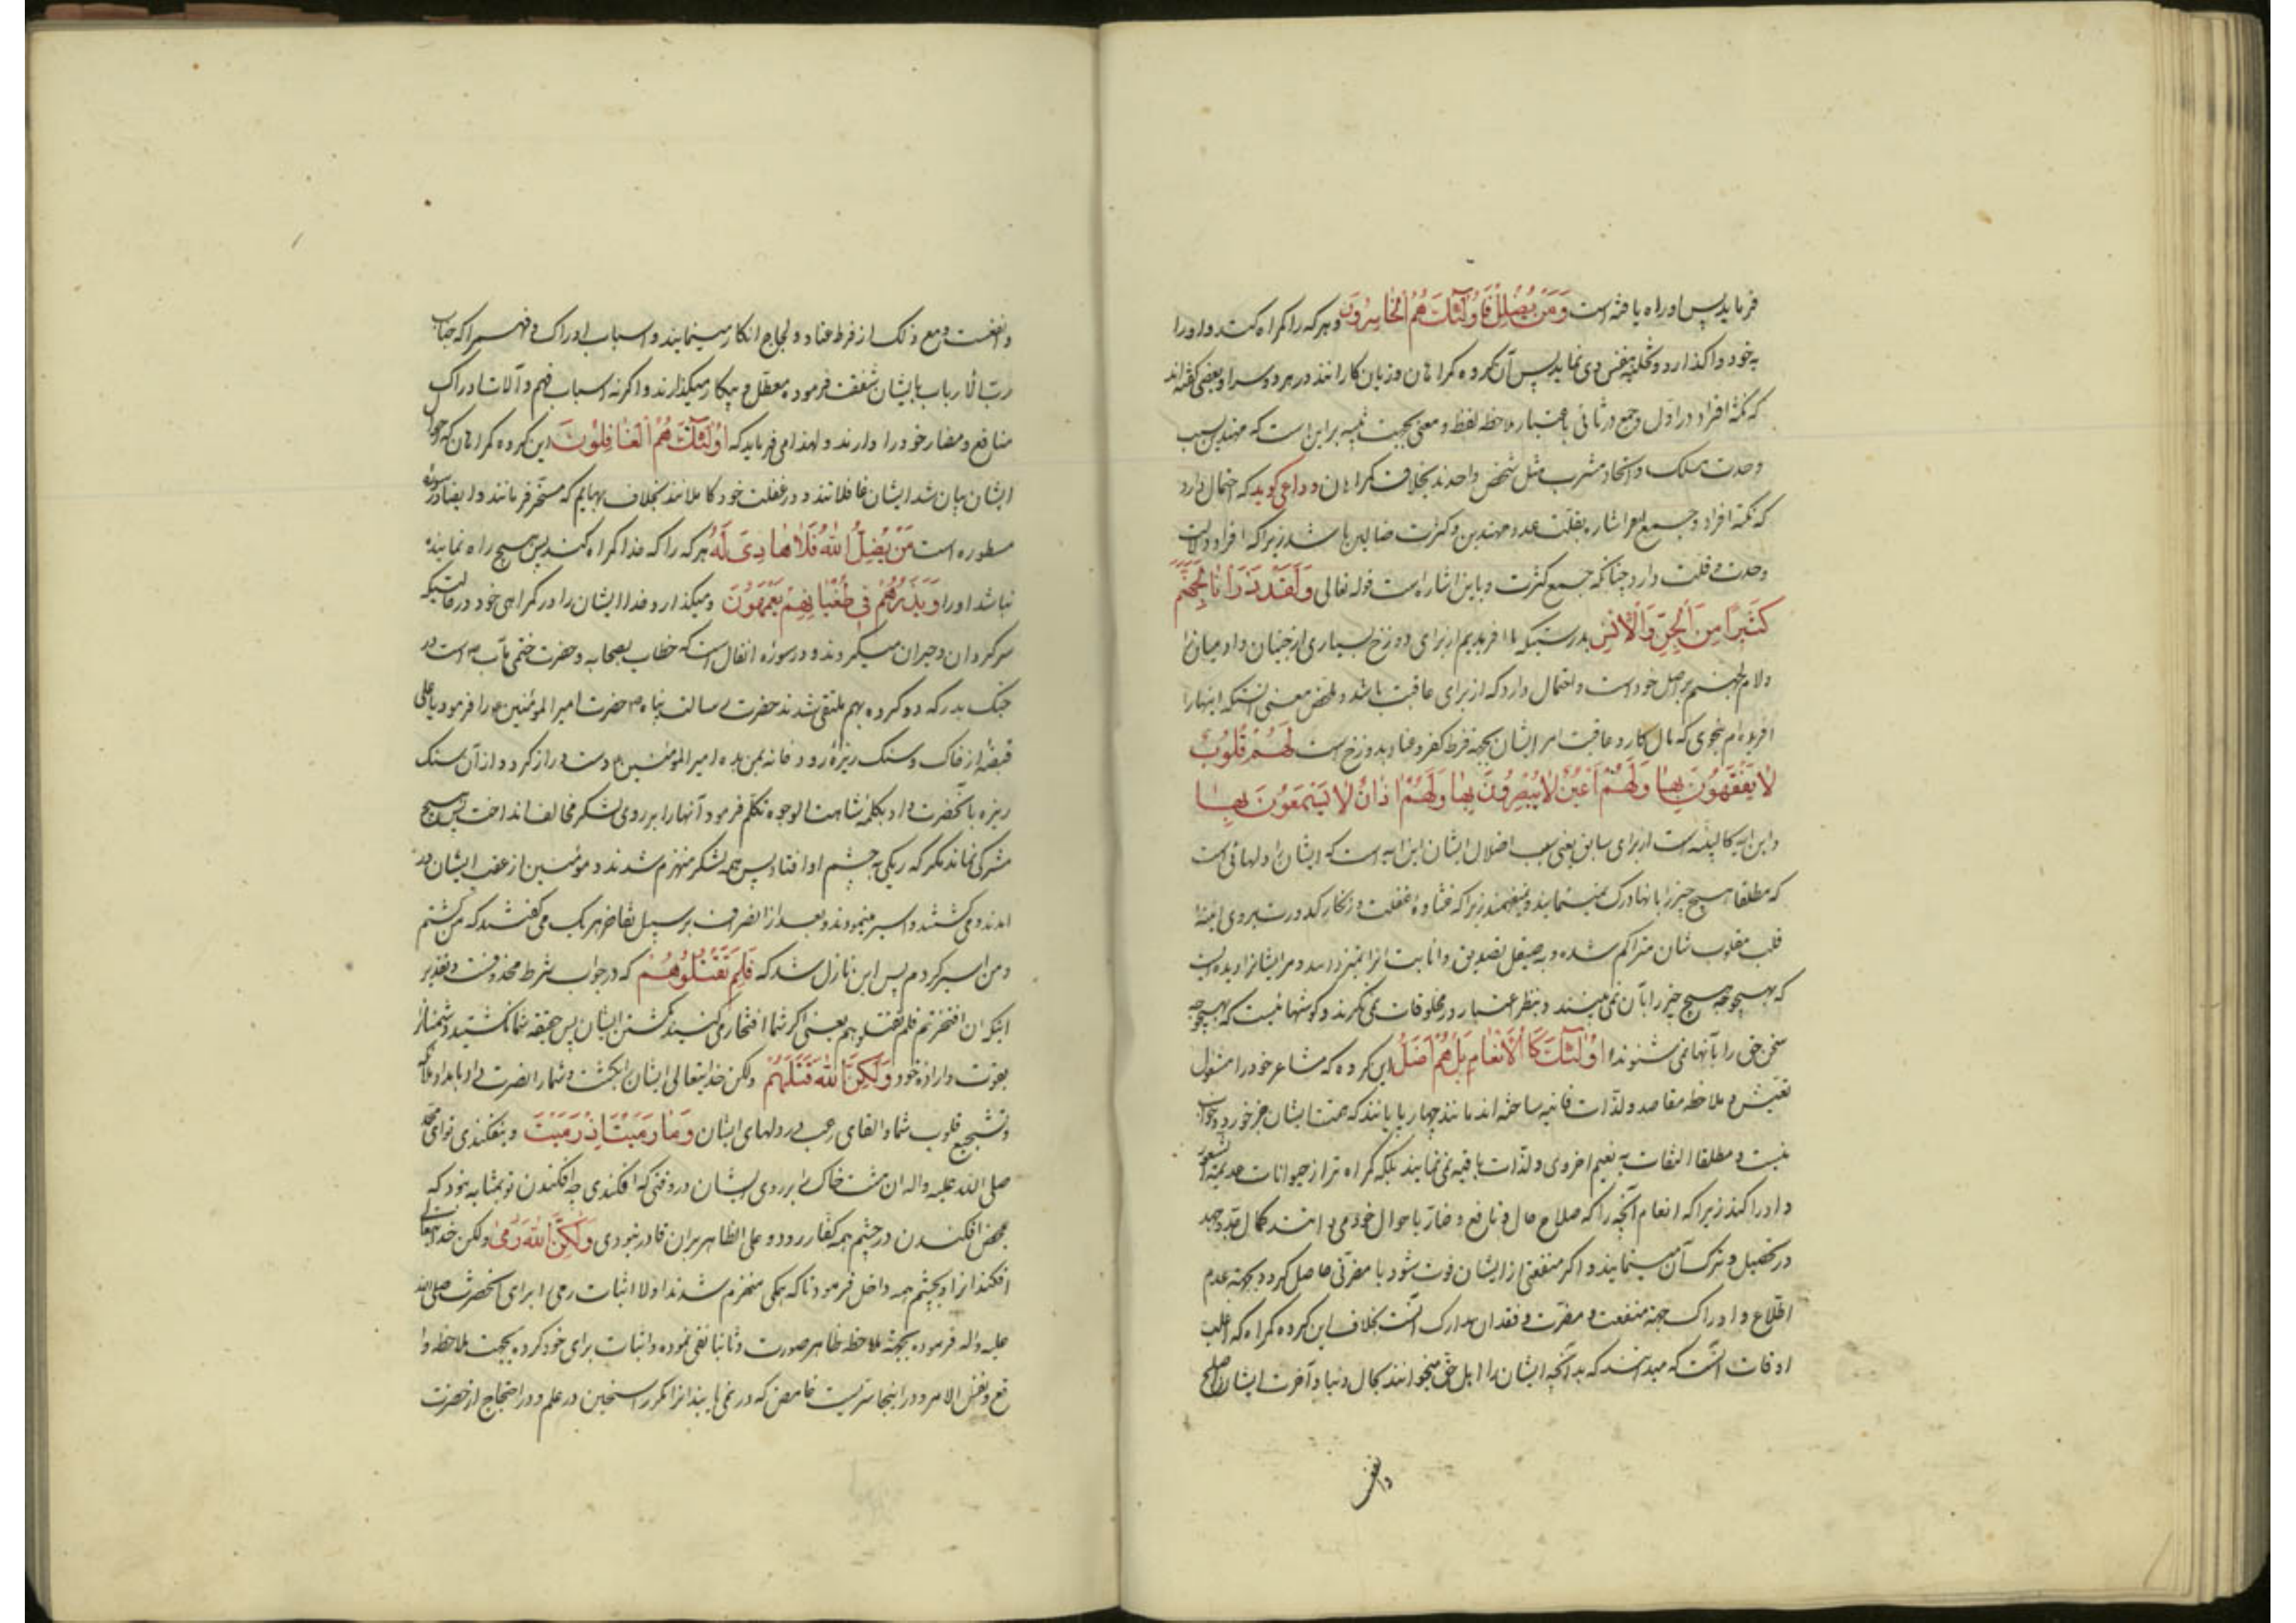 فرماید پس او راه یافته است وَمَنْ يُضْلِلْ فَاُولٰٓئِكَ هُمُ الْخٰاسِرُونَ و هر که را گمراه کند و او را
بخود واگذارد و تخلیه نفس وی نماید پس آن گروه گمراهان و زیان کارانند در هر دو سرا و بعضی گفته اند
که نکته افراد در اول و جمع در ثانی باعتبار ملاحظه لفظ و معنی بجهت تنبیه بر این است که مهتدین بسبب
وحدت مسلک و اتحاد مشرب مثل شخص واحدند بخلاف گمراهان و داعی گوید که احتمال دارد
که نکته افراد و جمع اشاره بقلت عدد مهتدین و کثرت ضالین باشد زیرا که افراد دلالت
وحدت و قلت دارد چنانکه جمع کثرت و باین اشاره است قوله تعالی وَلَقَدْ ذَرَأْنٰا لِجَهَنَّمَ
كَثيرًا مِنَ الْجِنِّ وَالْاِنْسِ بدرستیکه ما افریدیم از برای دوزخ بسیاری از جنیان و ادمیان را
و لام لجهنم بر اصل خود است و احتمال دارد که از برای عاقبت باشد و ملخص معنی انستکه اینها را
افریده ام بنحوی که مال کار و عاقبت امر ایشان بجهة فرط کفر و عناد بدوزخ است لَهُمْ قُلُوبٌ
لٰا يَفْقَهُونَ بِهٰا وَلَهُمْ اَعْيُنٌ لٰا يُبْصِرُونَ بِهٰا وَلَهُمْ اٰذٰانٌ لٰا يَسْمَعُونَ بِهٰا
و این ایه کالبینه است از برای سابق یعنی سبب اضلال ایشان این است که ایشان را دلهائی است
که مطلقا هیچ چیز را بانها درک نمینمایند و نمیفهمند زیرا که غشاوه غفلت و زنگار کدورت بر روی اینه
قلب مقلوب شان متراکم شده و به صیقل تصدیق و انابت انرا نمیزدایند و مر ایشانرا دیده ایست
که بهیچوجه هیچ چیز را بآن نمی بینند و بنظر اعتبار در مخلوقات نمی نگرند و گوشهائیست که بهیچوجه
سخن حق را بآنها نمی شنوند اُولٰٓئِكَ كَالْاَنْعٰامِ بَلْ هُمْ اَضَلُّ این گروه که مشاعر خود را مشغول
تعیش و ملاحظه مقاصد و لذات فانیه ساخته اند مانند چهار پایانند که همت ایشان جز خورد و خواب
نیست و مطلقا التفات به نعیم اخروی و لذات باقیه نمی نمایند بلکه گمراه تر از حیوانات عدیمة الشعور
و ادراکند زیرا که انعام آنچه را که صلاح حال و نافع و ضار باحوال خود می دانند کمال جد و جهد
در تحصیل و ترک آن مینمایند و اگر منفعتی از ایشان فوت شود یا مضرتی حاصل گردد بجهة عدم
اطلاع و ادراک جهة منفعت و مضرت و فقدان مدارک انست بخلاف این گروه گمراه که اغلب
اوقات انست که میدانند که بدآنچه ایشان را اهل حق میخوانند بحال دنیا و آخرت ایشان اصلح
وانفع
وانفعست و مع ذلک از فرط عناد و لجاج انکار مینمایند و اسباب ادراک و فهم را که جناب
رب الارباب بایشان شفقت فرموده معطل و بیکار میگذارند و اگرنه اسباب فهم و آلات ادراک
منافع و مضار خود را دارند و لهذا می فرماید که اُولٰٓئِكَ هُمُ الْغٰافِلُونَ این گروه گمراهان که احوال
ایشان بیان شد ایشان غافلانند و در غفلت خود کاملانند بخلاف بهایم که مسخر فرمانند و ایضا در سوره
مسطوره است مَنْ يُضْلِلِ اللّٰهُ فَلٰا هٰادِيَ لَهُ هر که را که خدا گمراه کند پس هیچ راه نماینده
نباشد او را وَيَذَرُهُمْ في طُغْيٰانِهِمْ يَعْمَهُونَ و میگذارد خدا ایشان را در گمراهی خود در حالتیکه
سرگردان و حیران میگردند و در سوره انفال است که خطاب بصحابه و حضرت ختمی مآب ص است در
جنگ بدر که دو گروه بهم ملتقی شدند حضرت رسالت پناه ص حضرت امیر المؤمنین ع را فرمود یا علی
قبضه از خاک و سنگ ریزه رودخانه بمن بده امیر المومنین ع دست دراز کرد و از آن سنگ
ریزه بآنحضرت داد بکلمه شاهت الوجوه تکلم فرمود آنها را بر روی لشکر مخالف انداخت پس هیچ
مشرکی نماند مگر که ریگی به چشم او افتاد پس همه لشکر منهزم شدند و مومنین از عقب ایشان در
امدند و می کشتند و اسیر مینمودند و بعد از انصراف بر سبیل تفاخر هر یک می گفتند که من کشتم
و من اسیر کردم پس این نازل شد که فَلَمْ تَقْتُلُوهُمْ که در جواب شرط محذوفست و تقدیر
اینکه ان افتخرتم فلم تقتلوهم یعنی اگر شما افتخار می کنید بکشتن ایشان پس حقیقه شما نکشتید دشمنانرا
بقوت و اراده خود وَلٰكِنَّ اللّٰهَ قَتَلَهُمْ ولکن خدایتعالی ایشان را بکشت و شما را نصرت داد بامداد ملائکه
و تشجیع قلوب شما و القای رعب در دلهای ایشان وَمٰا رَمَيْتَ اِذْ رَمَيْتَ و نیفکندی تو ای محمد
صلی الله علیه و اله ان مشت خاک را بر روی ایشان در وقتی که افکندی چه افکندن تو بمثابه نبود که
بمحض افکندن در چشم همه کفار رود و علی الظاهر بران قادر نبودی وَلٰكِنَّ اللّٰهَ رَمٰى ولکن خدایتعالی
افکند انرا و بچشم همه داخل فرمود تا که همگی منهزم شدند اولا اثبات رمی را برای انحضرت صلی الله
علیه و اله فرموده بجهة ملاحظه ظاهر صورت و ثانیا نفی نموده و اثبات برای خود کرده بجهت ملاحظه وا
قع و نفس الامر و در اینجا سریست غامض که در نمی یابند انرا مگر راسخین در علم و در احتجاج از حضرت